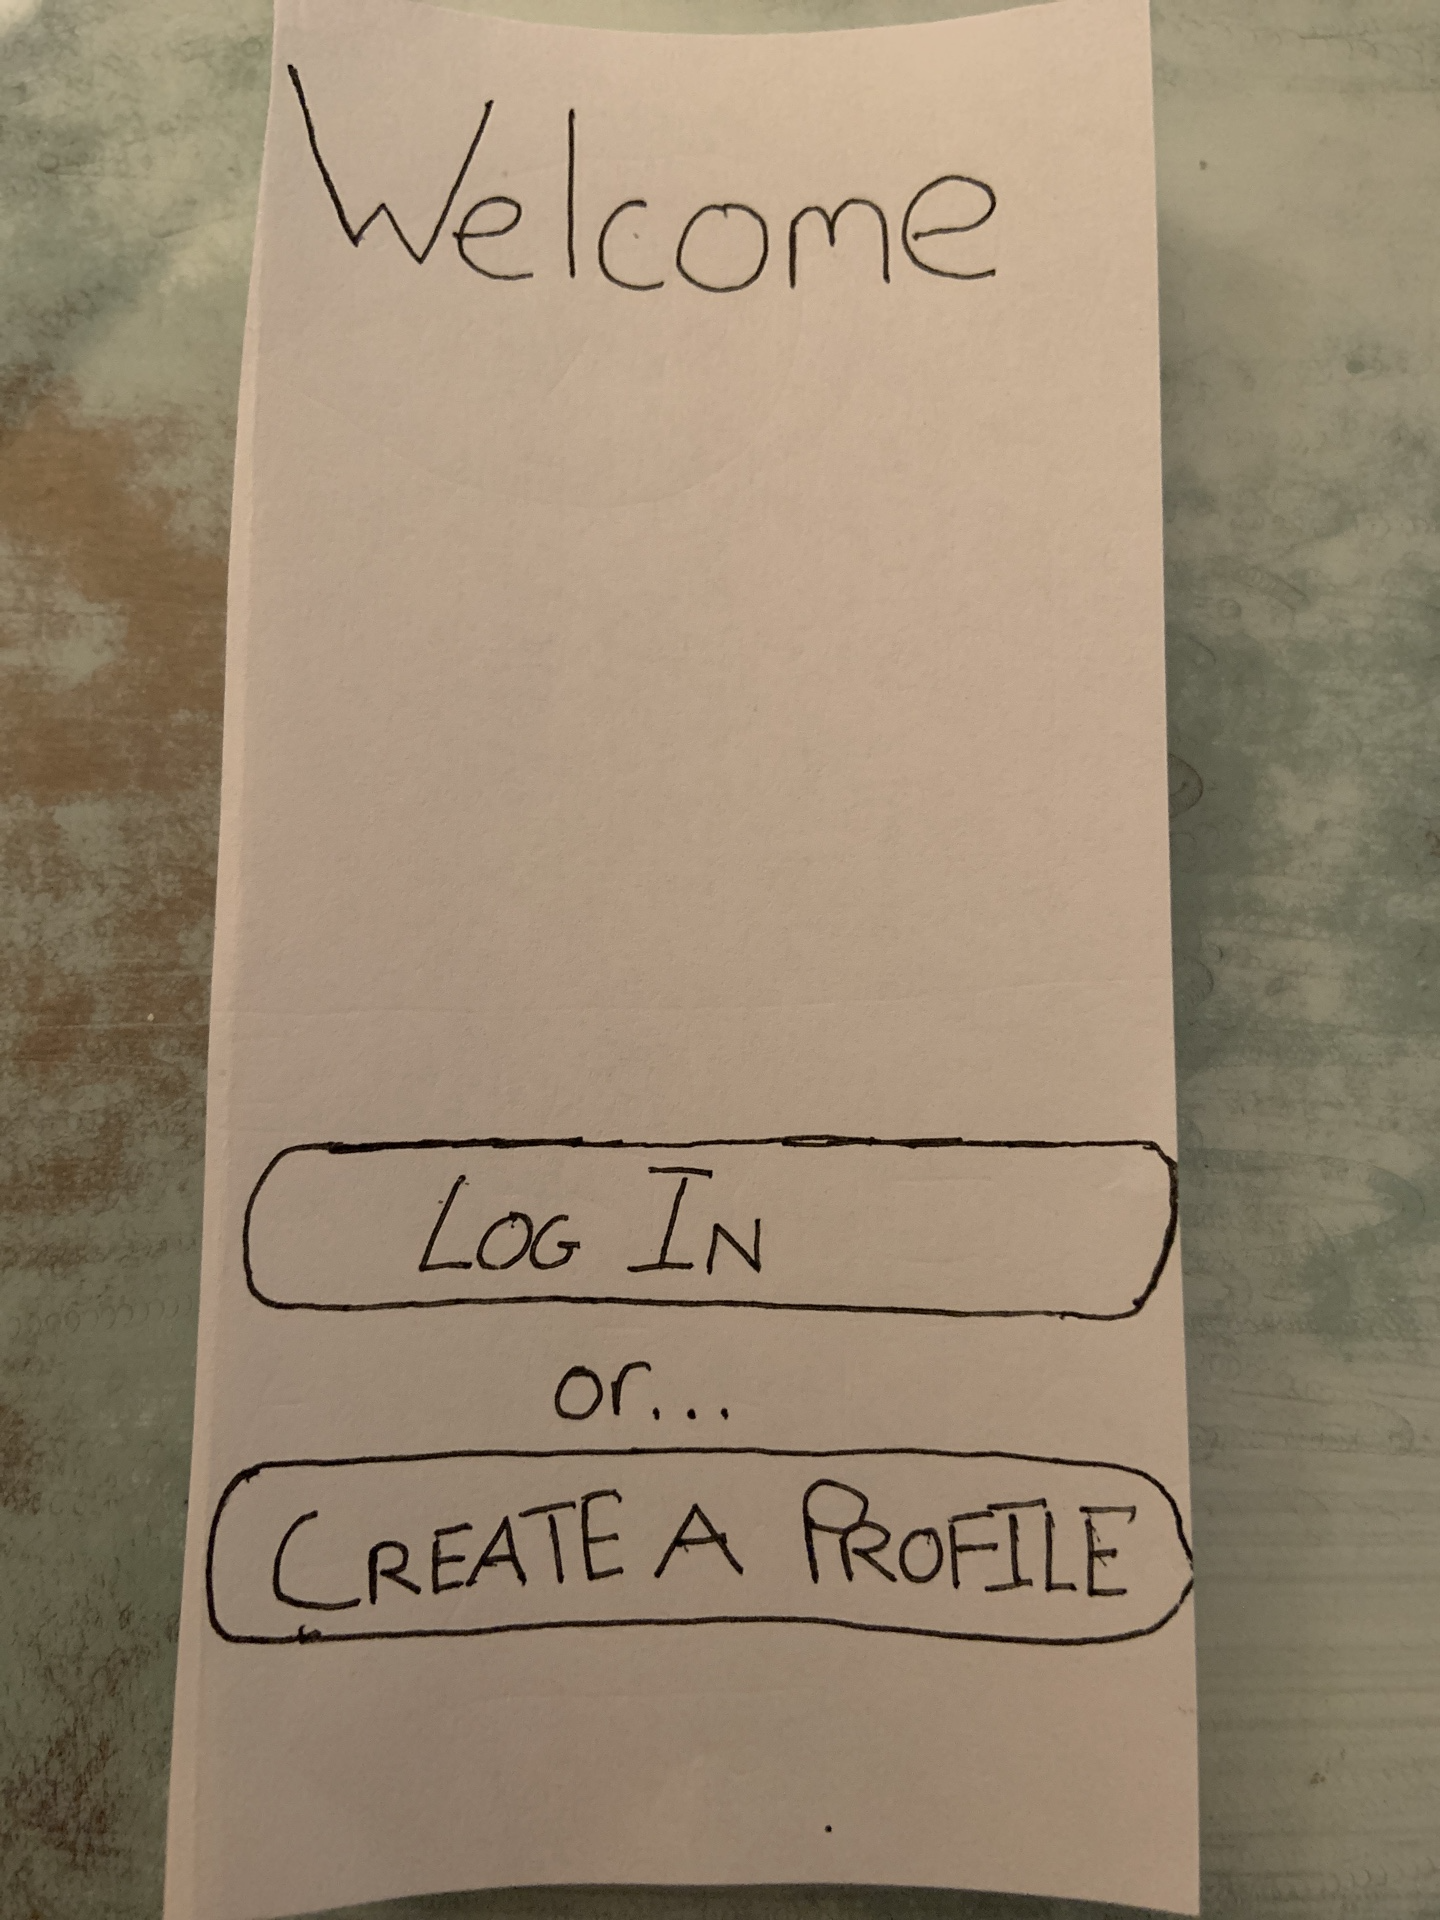 Welcome
LOG IN
or...
CREATE A PROFILE